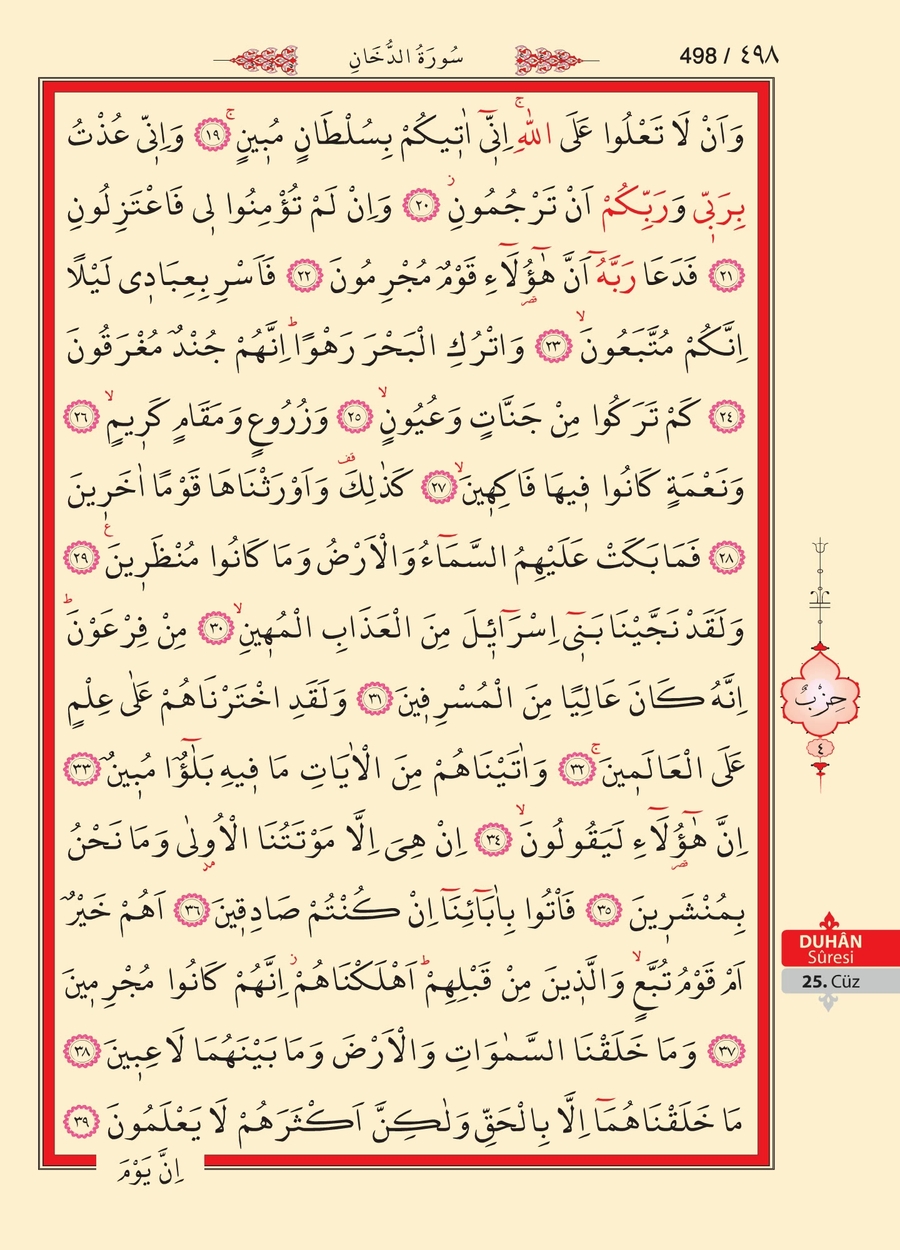 سُورَةُ الدُّخَانِ
498 / ٤٩٨
وَاَنْ لَا تَعْلُوا عَلَى اللّٰهِۚ اِنّٖٓي اٰتٖيكُمْ بِسُلْطَانٍ مُبٖينٍۚ ﴿١٩﴾ وَاِنّٖي عُذْتُ
بِرَبّٖي وَرَبِّكُمْ اَنْ تَرْجُمُونِؗ ﴿٢٠﴾ وَاِنْ لَمْ تُؤْمِنُوا لٖي فَاعْتَزِلُونِ
﴿٢١﴾ فَدَعَا رَبَّهُٓ اَنَّ هٰٓؤُ۬لَٓاءِ قَوْمٌ مُجْرِمُونَ ﴿٢٢﴾ فَاَسْرِ بِعِبَادٖي لَيْلًا
اِنَّكُمْ مُتَّبَعُونَۙ ﴿٢٣﴾ وَاتْرُكِ الْبَحْرَ رَهْوًاؕ اِنَّهُمْ جُنْدٌ مُغْرَقُونَ
﴿٢٤﴾ كَمْ تَرَكُوا مِنْ جَنَّاتٍ وَعُيُونٍۙ ﴿٢٥﴾ وَزُرُوعٍ وَمَقَامٍ كَرٖيمٍۙ ﴿٢٦﴾
وَنَعْمَةٍ كَانُوا فٖيهَا فَاكِهٖينَۙ ﴿٢٧﴾ كَذٰلِكَ قف وَاَوْرَثْنَاهَا قَوْمًا اٰخَرٖينَ
﴿٢٨﴾ فَمَا بَكَتْ عَلَيْهِمُ السَّمَٓاءُ وَالْاَرْضُ وَمَا كَانُوا مُنْظَرٖينَ ع ﴿٢٩﴾
وَلَقَدْ نَجَّيْنَا بَنٖٓي اِسْرَٓائٖلَ مِنَ الْعَذَابِ الْمُهٖينِۙ ﴿٣٠﴾ مِنْ فِرْعَوْنَؕ
اِنَّهُ كَانَ عَالِيًا مِنَ الْمُسْرِفٖينَ ﴿٣١﴾ وَلَقَدِ اخْتَرْنَاهُمْ عَلٰى عِلْمٍ
عَلَى الْعَالَمٖينَۚ ﴿٣٢﴾ وَاٰتَيْنَاهُمْ مِنَ الْاٰيَاتِ مَا فٖيهِ بَلٰٓؤٌ۬ا مُبٖينٌ ﴿٣٣﴾
اِنَّ هٰٓؤُ۬لَٓاءِ لَيَقُولُونَۙ ﴿٣٤﴾ اِنْ هِيَ اِلَّا مَوْتَتُنَا الْاُو۫لٰى وَمَا نَحْنُ
بِمُنْشَرٖينَ ﴿٣٥﴾ فَأْتُوا بِاٰبَٓائِنَٓا اِنْ كُنْتُمْ صَادِقٖينَ ﴿٣٦﴾ اَهُمْ خَيْرٌ
اَمْ قَوْمُ تُبَّعٍۙ وَالَّذٖينَ مِنْ قَبْلِهِمْؕ اَهْلَكْنَاهُمْؗ اِنَّهُمْ كَانُوا مُجْرِمٖينَ
﴿٣٧﴾ وَمَا خَلَقْنَا السَّمٰوَاتِ وَالْاَرْضَ وَمَا بَيْنَهُمَا لَاعِبٖينَ ﴿٣٨﴾
مَا خَلَقْنَاهُمَٓا اِلَّا بِالْحَقِّ وَلٰكِنَّ اَكْثَرَهُمْ لَا يَعْلَمُونَ ﴿٣٩﴾
اِنَّ يَوْمَ
حِزْبٌ
٤
DUHÂN
Sûresi
25. Cüz